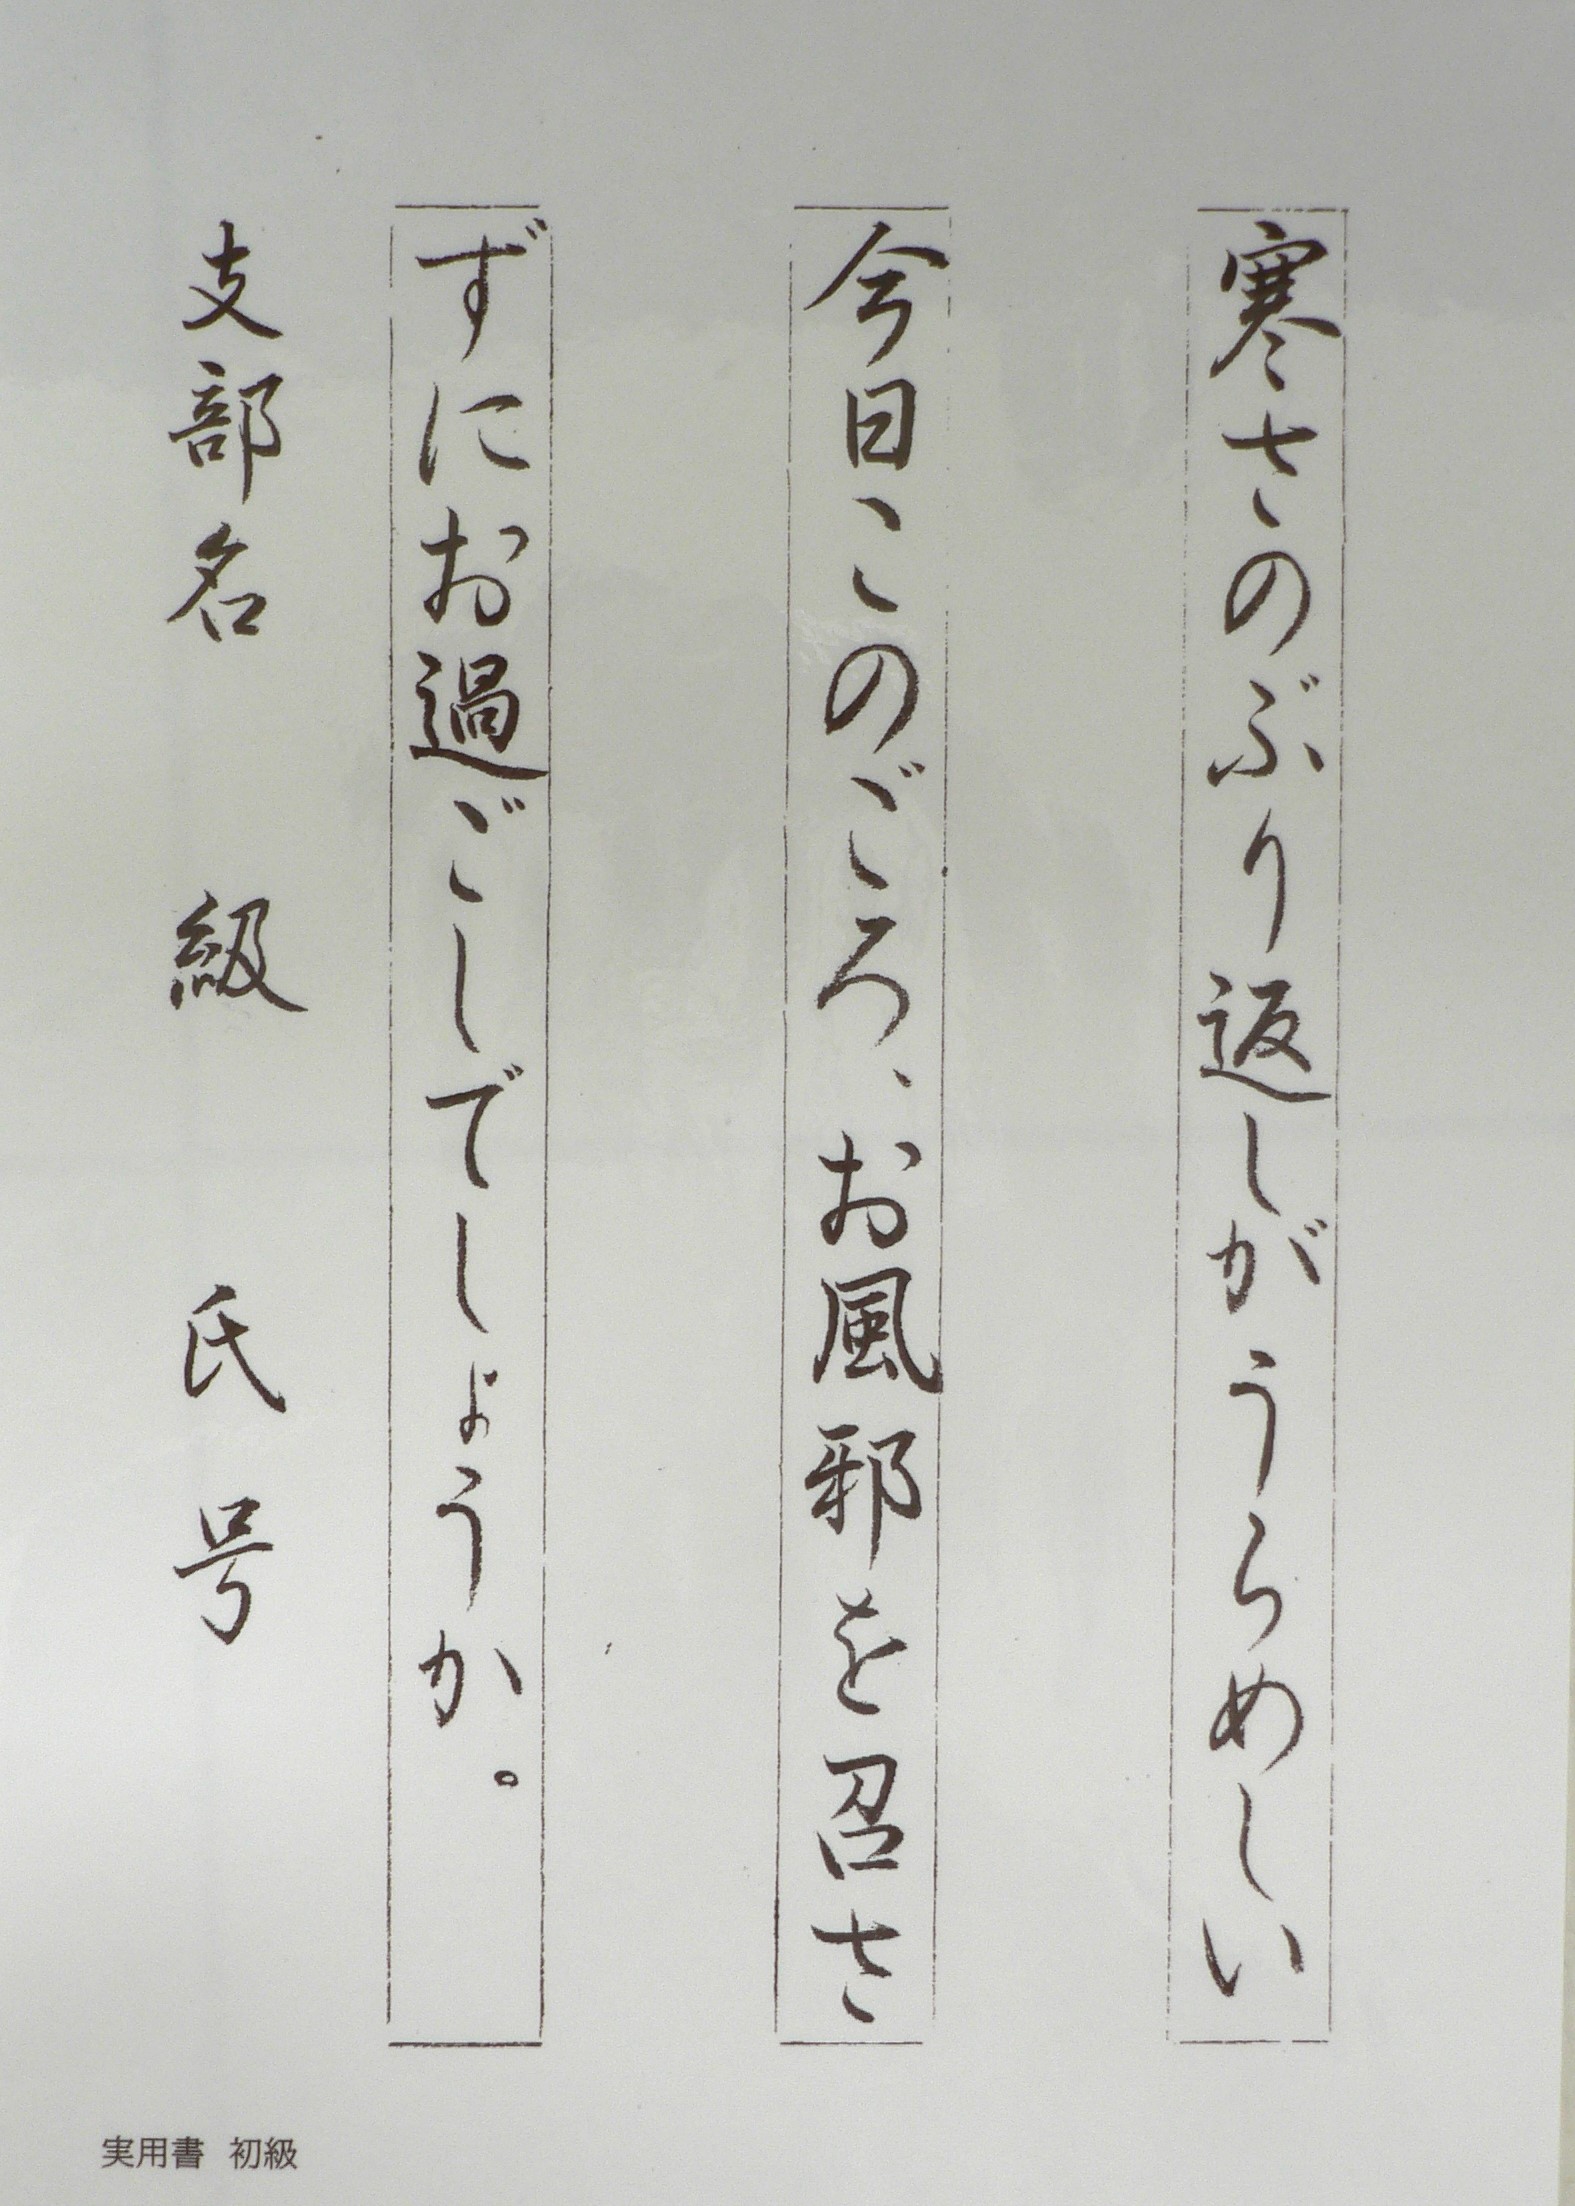 寒さのぶり返しがうらめしい
今日このごろ、お風邪を召さ
ずにお過ごしでしょうか。
支部名 級 氏号
実用書 初級